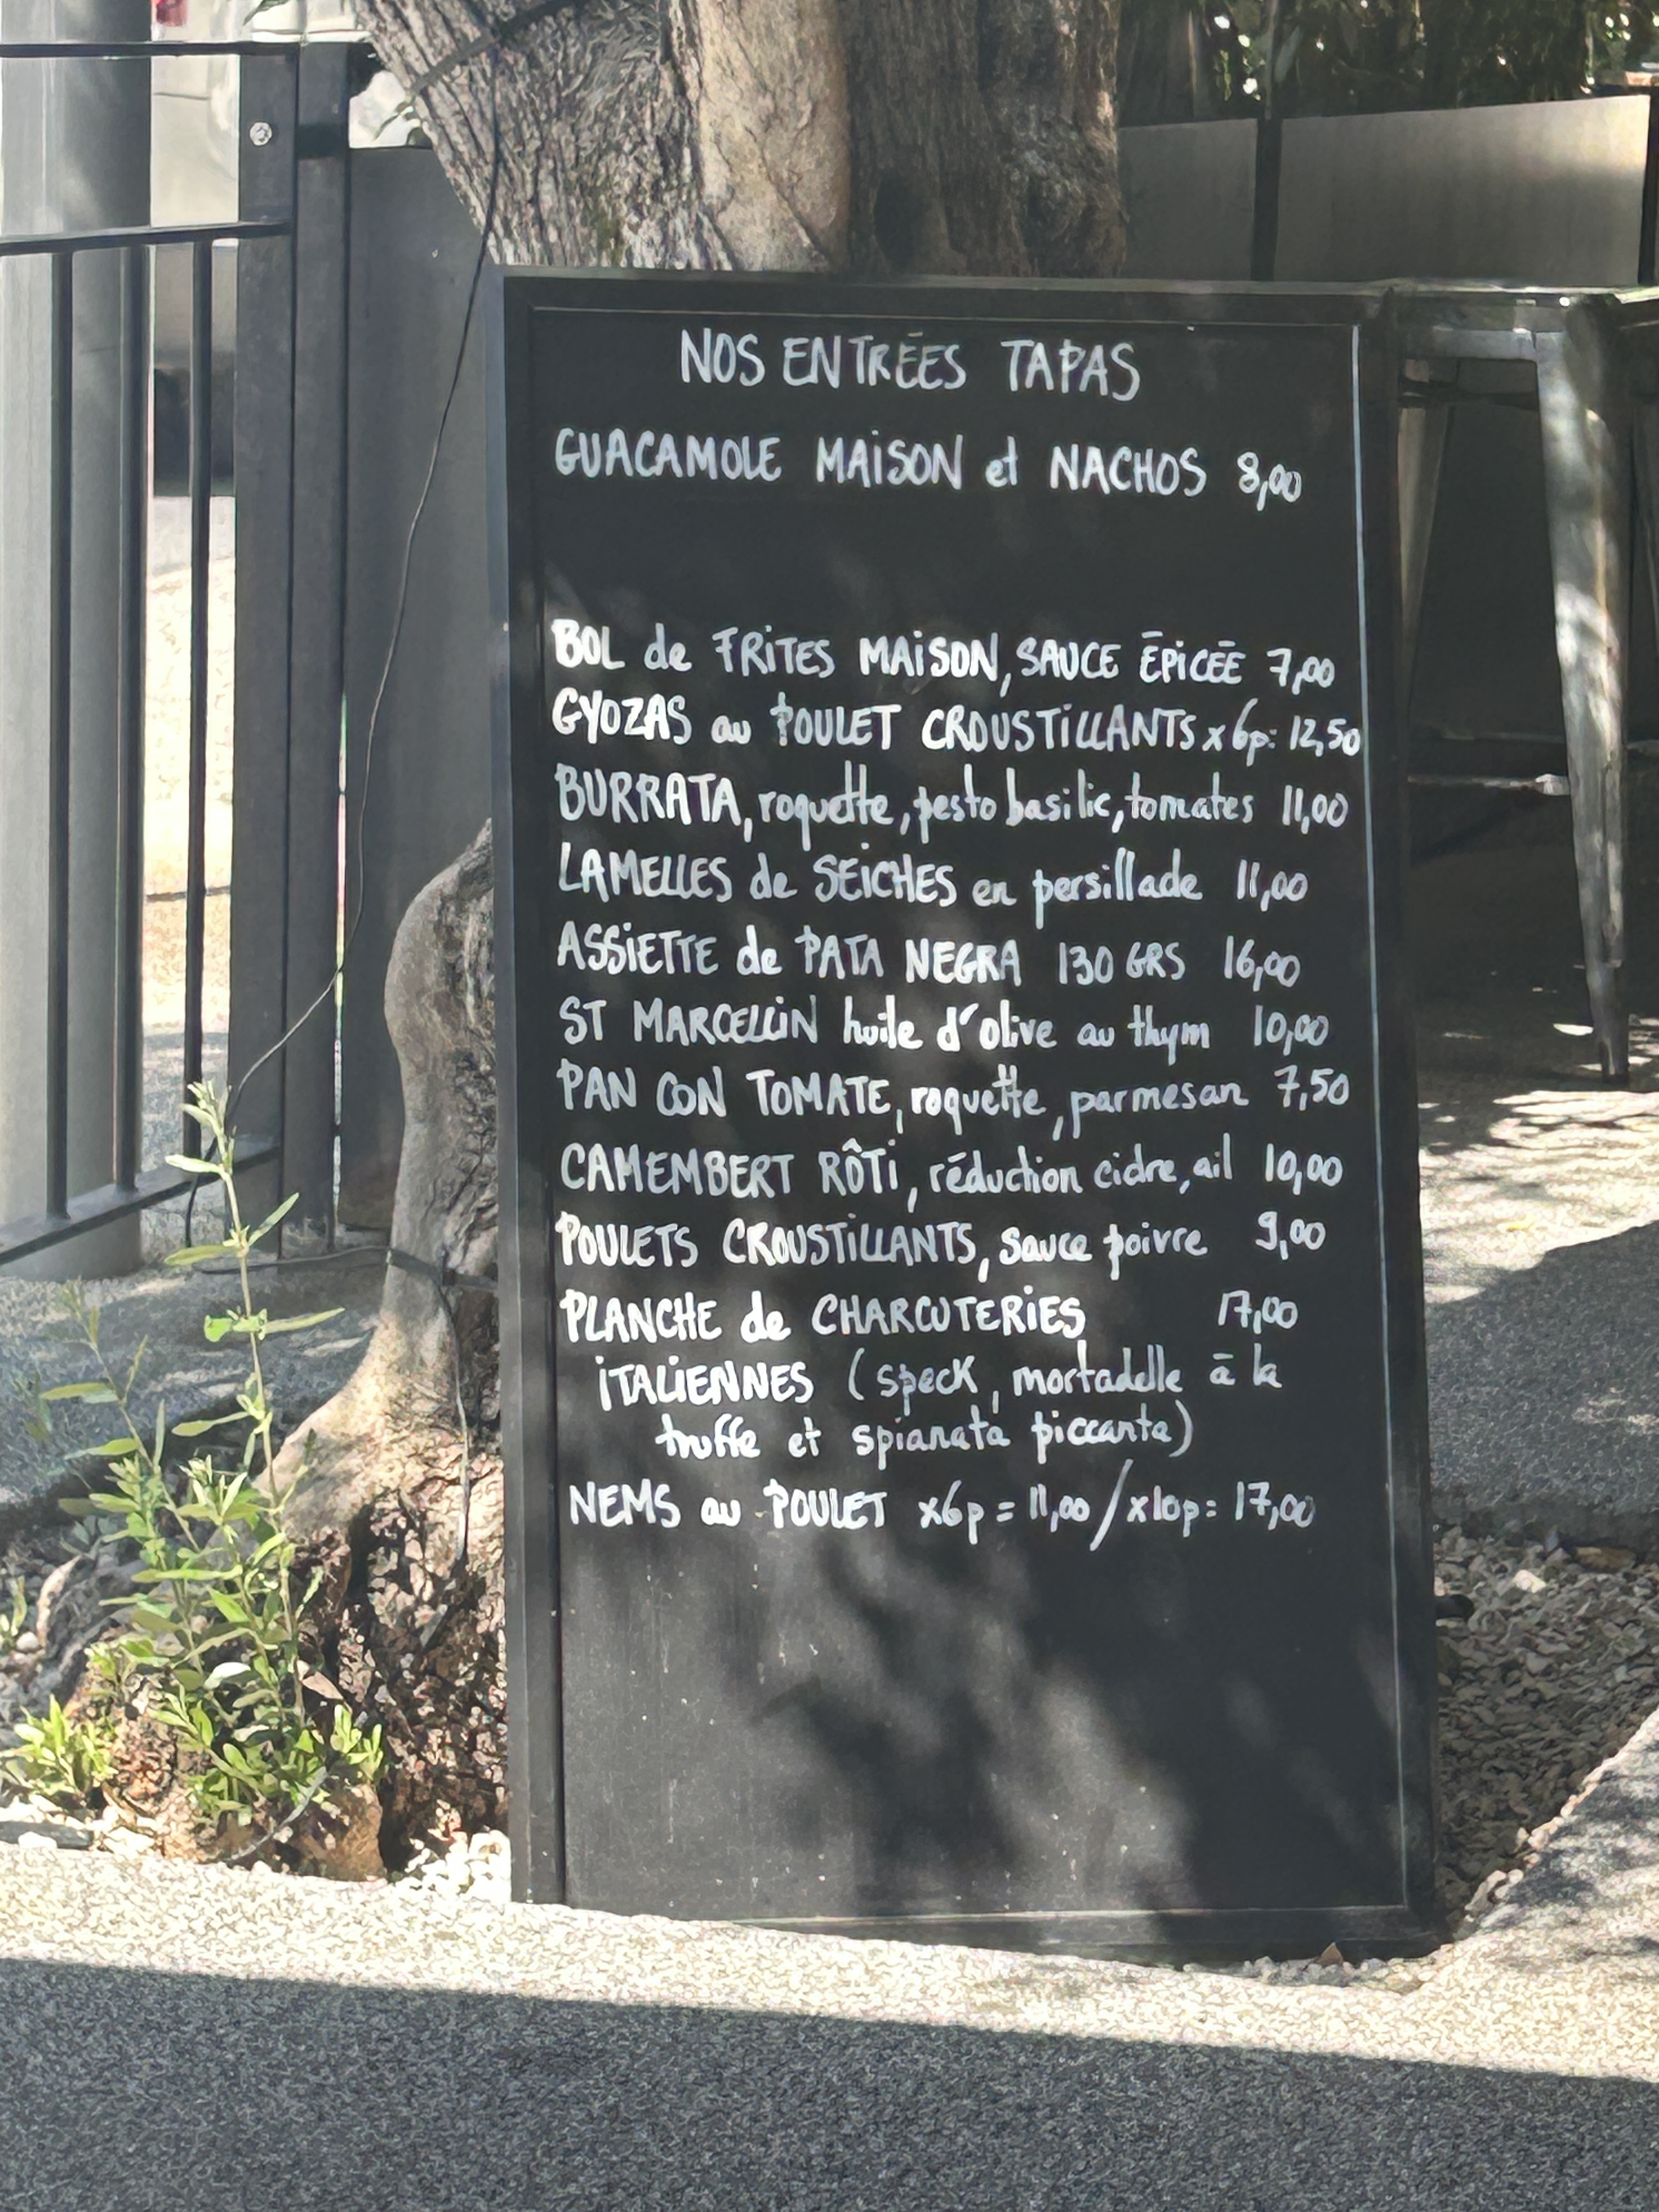 NOS ENTRÉES TAPAS
GUACAMOLE MAiSON et NACHOS 8,00
BOL de FRiTES MAiSON, SAUCE ÉPiCÉE 7,00
GYOZAS au POULET CROUSTiLLANTS x6p: 12,50
BURRATA, roquette, pesto basilic, tomates 11,00
LAMELLES de SEiCHES en persillade 11,00
ASSiETTE de PATA NEGRA 130 GRS 16,00
ST MARCELLiN huile d'olive au thym 10,00
PAN CON TOMATE, roquette, parmesan 7,50
CAMEMBERT RÔTi, réduction cidre, ail 10,00
POULETS CROUSTiLLANTS, sauce poivre 9,00
PLANCHE de CHARCUTERiES 17,00
iTALiENNES (speck, mortadelle à la
truffe et spianata piccanta)
NEMS au POULET x6p = 11,00 / x10p = 17,00